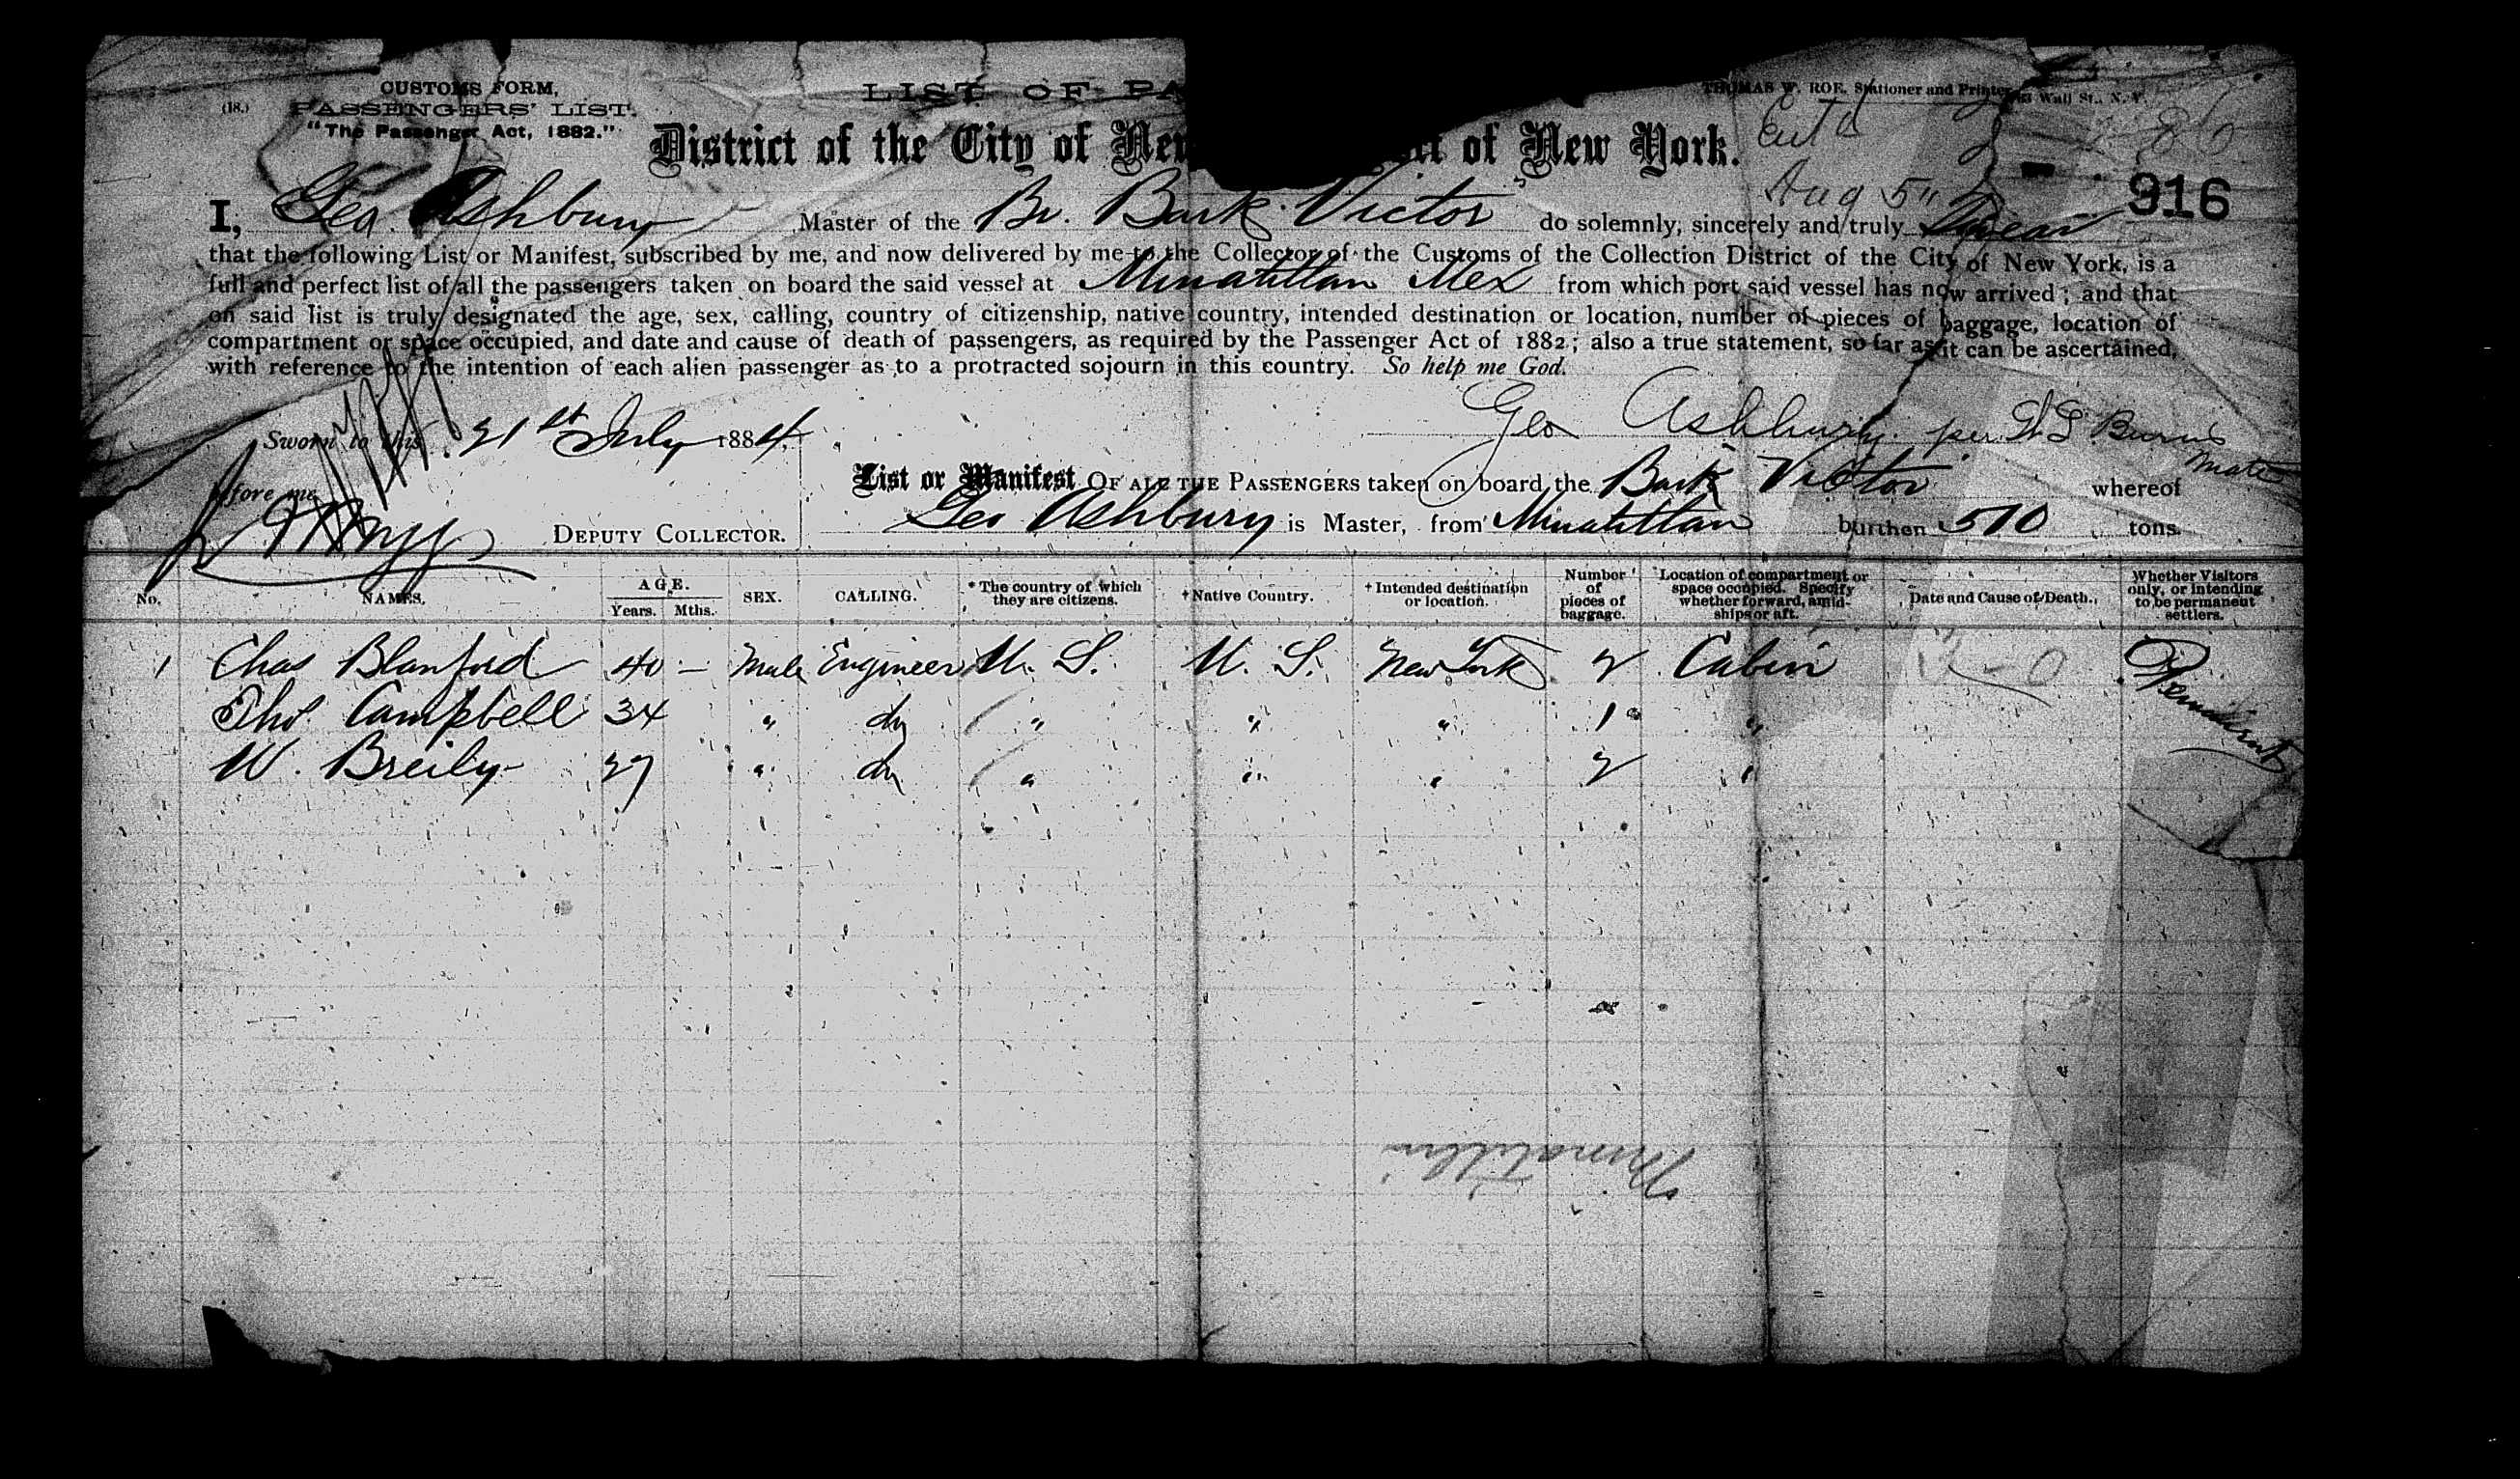 CUSTOMS FORM,
(18.) PASSENGERS' LIST.
"The Passenger Act, 1882."
LIST OF PA
THOMAS W. ROE, Stationer and Printer, Wall St., N. Y.
District of the City of New of New York.
Aug 5"
916
I, Geo. Ashbury Master of the Br. Bark Victor do solemnly, sincerely and truly Swear
that the following List or Manifest, subscribed by me, and now delivered by me to the Collector of the Customs of the Collection District of the City of New York, is a
full and perfect list of all the passengers taken on board the said vessel at Minatitlan Mex from which port said vessel has now arrived; and that
on said list is truly designated the age, sex, calling, country of citizenship, native country, intended destination or location, number of pieces of baggage, location of
compartment or space occupied, and date and cause of death of passengers, as required by the Passenger Act of 1882; also a true statement, so far as it can be ascertained,
with reference to the intention of each alien passenger as to a protracted sojourn in this country. So help me God.
Geo Ashbury. per Burns
Mate
Sworn to this 21st July 1884.
before me
DEPUTY COLLECTOR.
List or Manifest OF ALL THE PASSENGERS taken on board the Bark Victor whereof
Geo Ashbury is Master, from Minatitlan burthen 510 tons.
No. NAMES. AGE. Years. Mths. SEX. CALLING. * The country of which they are citizens. † Native Country. † Intended destination or location. Number of pieces of baggage. Location of compartment or space occupied. Specify whether forward, amid-ships or aft. Date and Cause of Death. Whether Visitors only, or intending to be permanent settlers.
1 Chas Blanford 40 — Male Engineer U. S. U. S. New York 2 Cabin Permanent
Tho. Campbell 34 " do " " " 1 "
W. Breily 27 " do " " " 2 "
Minatitlan